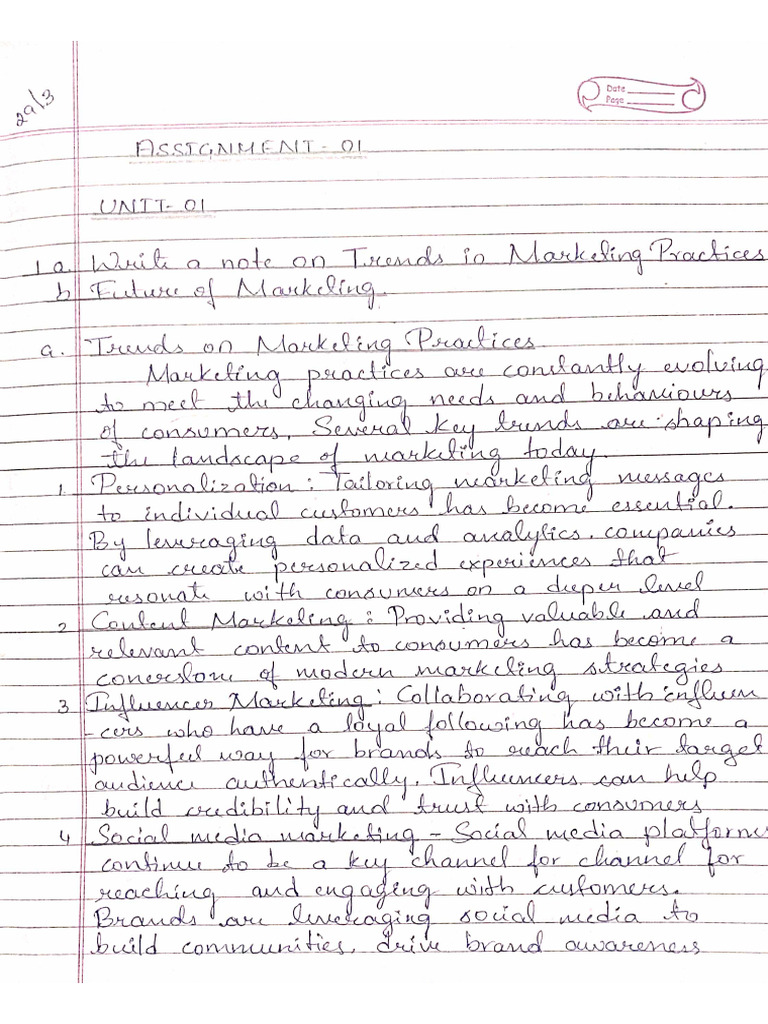 29/3
Date
Page
ASSIGNMENT- 01
UNIT- 01
1 a. Write a note on Trends in Marketing Practices
b Future of Marketing.
a. Trends on Marketing Practices
Marketing practices are constantly evolving
to meet the changing needs and behaviours
of consumers. Several key trends are shaping
the landscape of marketing today.
1. Personalization : Tailoring marketing messages
to individual customers has become essential.
By leveraging data and analytics. companies
can create personalized experiences that
resonate with consumers on a deeper level
2 Content Marketing : Providing valuable and
relevant content to consumers has become a
conerstone of modern marketing strategies
3 Influencer Marketing : Collaborating with influen
-cers who have a loyal following has become a
powerful way for brands to reach their target
audience authentically. Influencers can help
build credibility and trust with consumers
4 Social media marketing - Social media platforms
continue to be a key channel for channel for
reaching and engaging with customers.
Brands are leveraging social media to
build communities, drive brand awareness